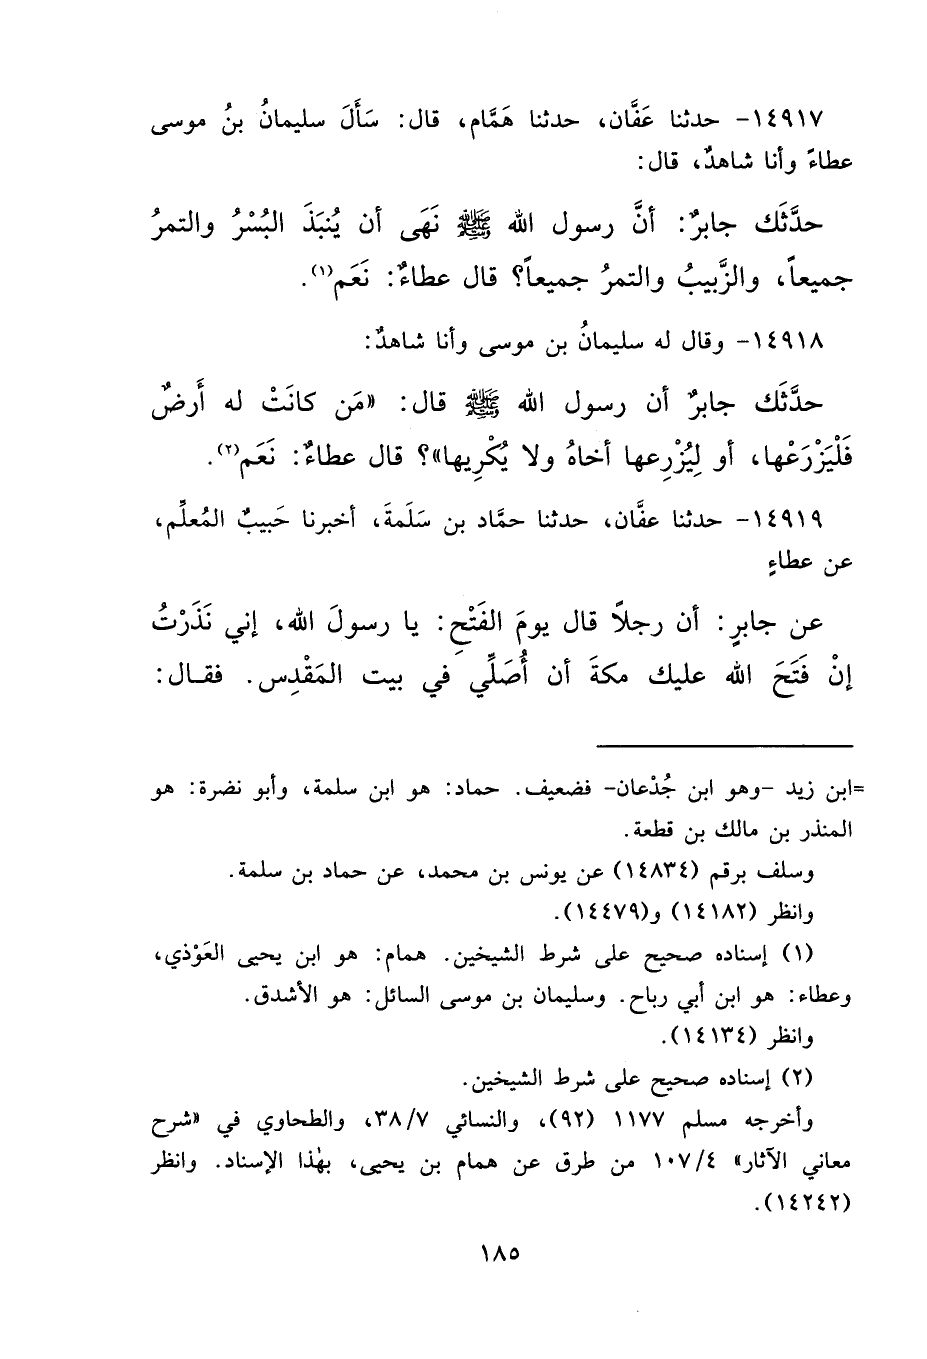 ١٤٩١٧- حدثنا عَفَّان، حدثنا هَمَّام، قال: سَأَلَ سليمانُ بنُ موسى
عطاءً وأنا شاهدٌ، قال:
حدَّثَك جابرٌ: أنَّ رسول الله ﷺ نَهَى أن يُنبَذَ البُسْرُ والتمرُ
جميعاً، والزَّبيبُ والتمرُ جميعاً؟ قال عطاءٌ: نَعَم(١).
١٤٩١٨- وقال له سليمانُ بن موسى وأنا شاهدٌ:
حدَّثَك جابرٌ أن رسول الله ﷺ قال: «مَن كانَتْ له أَرضٌ
فَلْيَزْرَعْها، أو لِيُزْرِعها أخاهُ ولا يُكْرِيها»؟ قال عطاءٌ: نَعَم(٢).
١٤٩١٩- حدثنا عفَّان، حدثنا حمَّاد بن سَلَمةَ، أخبرنا حَبيبٌ المُعلِّم،
عن عطاءٍ
عن جابرٍ: أن رجلاً قال يومَ الفَتْحِ: يا رسولَ الله، إني نَذَرْتُ
إنْ فَتَحَ الله عليك مكةَ أن أُصَلِّي في بيت المَقْدِس. فقال:
=ابن زيد -وهو ابن جُدْعان- فضعيف. حماد: هو ابن سلمة، وأبو نضرة: هو
المنذر بن مالك بن قطعة.
وسلف برقم (١٤٨٣٤) عن يونس بن محمد، عن حماد بن سلمة.
وانظر (١٤١٨٢) و(١٤٤٧٩).
(١) إسناده صحيح على شرط الشيخين. همام: هو ابن يحيى العَوْذي،
وعطاء: هو ابن أبي رباح. وسليمان بن موسى السائل: هو الأشدق.
وانظر (١٤١٣٤).
(٢) إسناده صحيح على شرط الشيخين.
وأخرجه مسلم ١١٧٧ (٩٢)، والنسائي ٣٨/٧، والطحاوي في «شرح
معاني الآثار» ١٠٧/٤ من طرق عن همام بن يحيى، بهٰذا الإسناد. وانظر
(١٤٢٤٢).
١٨٥